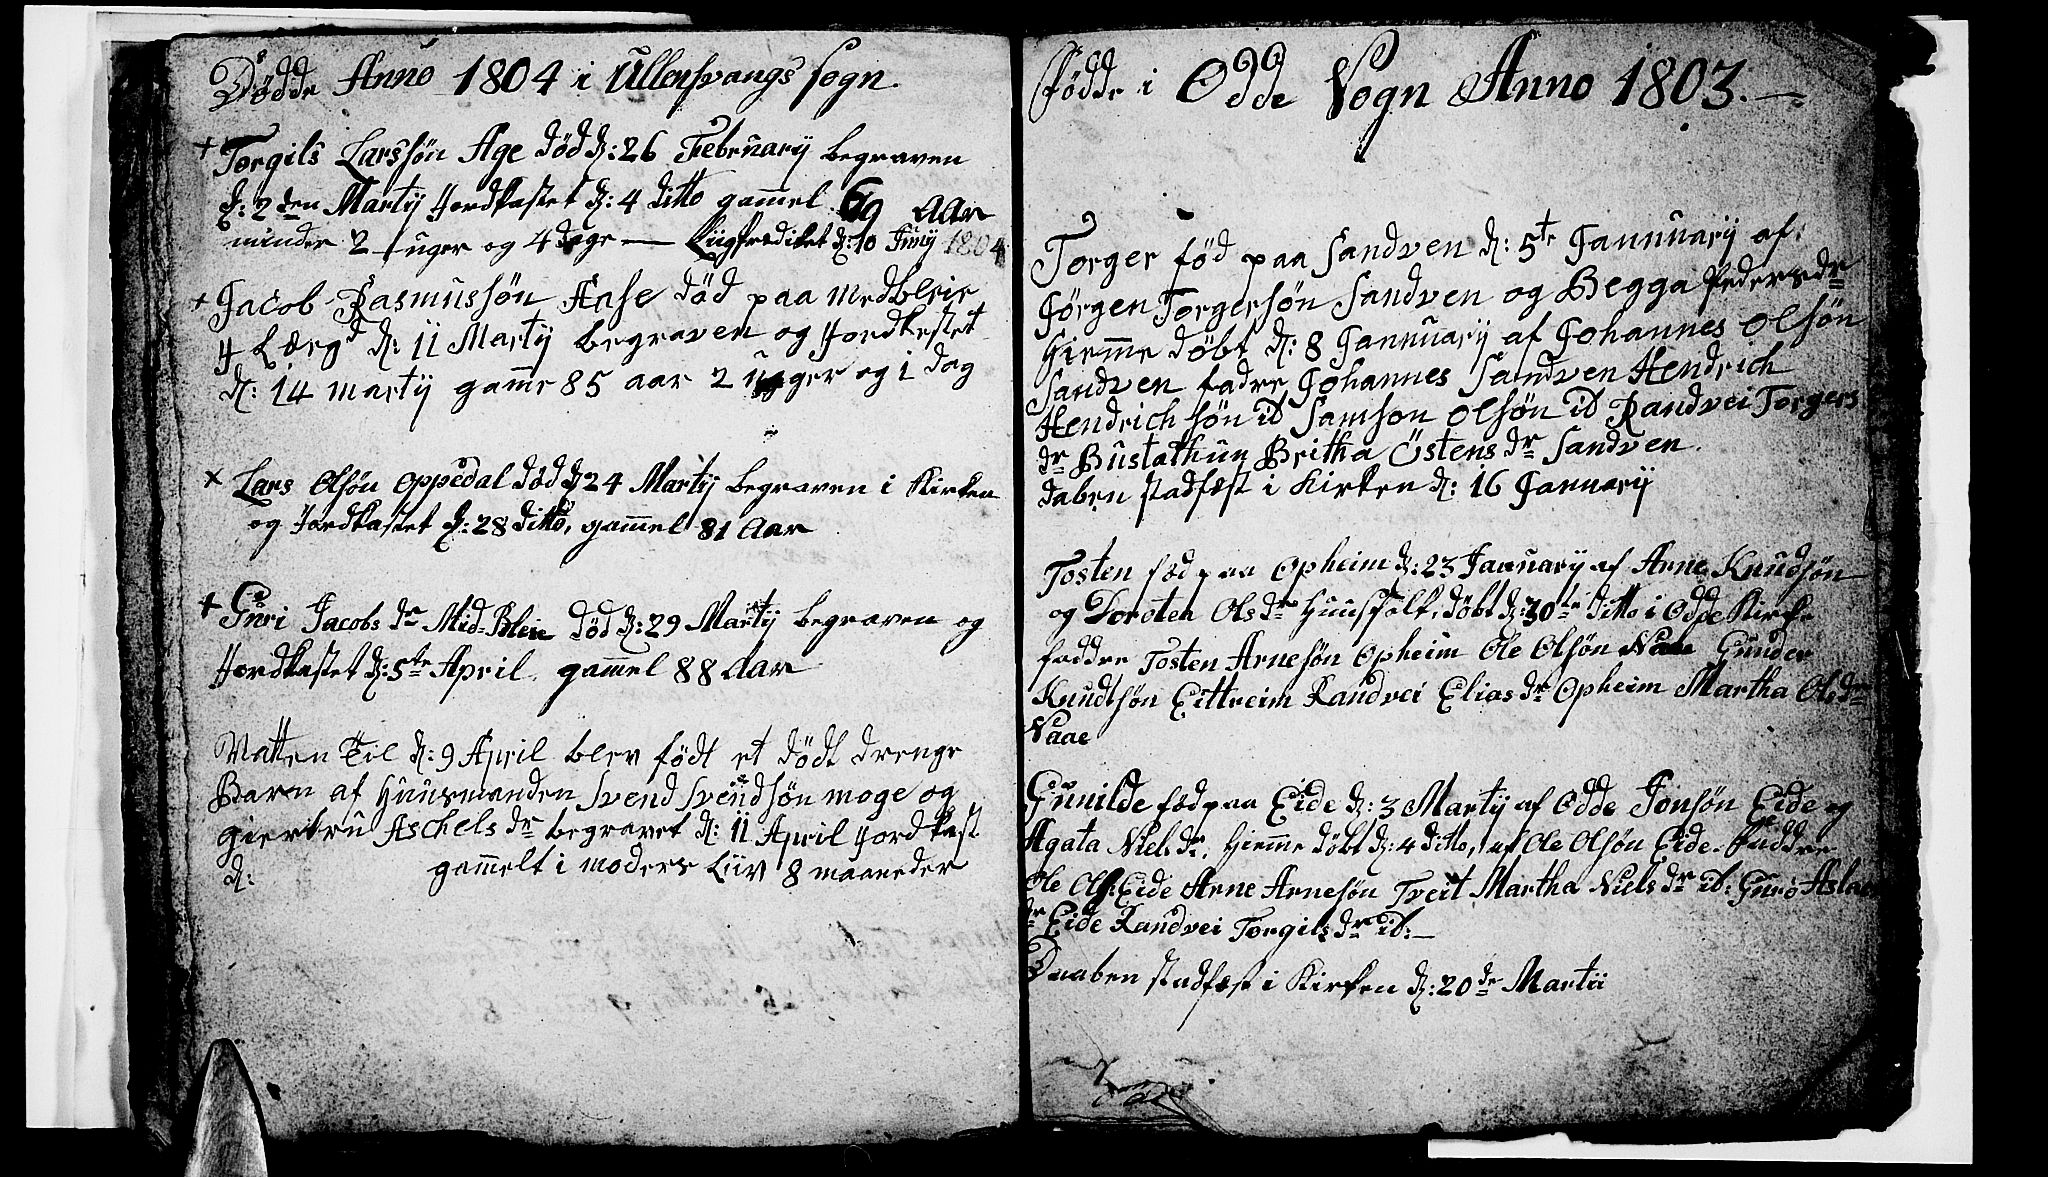 Dødde Anno 1804 i Ullensvangs sogn.
+ Torgils Larssøn Age død d: 26 Februarij begraven
d: 2den Martij Jordkastet d: 4 ditto gammel 69 Aar
minder 2 uger og 4 dage — Liigprædiket d: 10 Junij 1804
+ Jacob Rasmussøn Anse død paa Medbleie
4 Lægd d: 11 Martij begraven og Jordkastet
d: 14 martij gamme 85 aar 2 uger og 1 dag
x Lars Olsøn Oppedal død d 24 Martij begraven i Kirken
og Jordkastet d: 28 ditto, gammel 81 Aar
+ Guri Jacobs dr Mid-Bleie død d: 29 Martij begraven og
Jordkastet d: 5te April. gammel 88 Aar
Natten Til d: 9 April blev født et dødt drenge
Barn af Huusmanden Svend Svendsøn moge og
giertru Aschels dr begravet d: 11 April Jordkast
d: gammelt i moders Liiv 8 maaneder
Fødde i Odde Sogn Anno 1803.—
Torger fød paa Sandven d: 5te Januuarij af
Jørgen Torgersøn Sandven og Begga Pedersdr
Hiemme døbt d: 8 Januuarij af Johannes Olsøn
Sandven fadre Johannes Sandven Hendrich
Hendrich søn id Samson Olsøn id Randvei Torgers
dr Bustathun Britha Östens dr Sandven.
daben stadfæst i Kirken d: 16 Januarij
Tosten fød paa Opheim d: 23 Januarij af Arne Knudsøn
og Torsten Ols dr Huusfolk, døbt d: 30te ditto i Odde Kirke
faddre Tosten Arnesøn Opheim Ole Olsøn Naae Gunder
Knudtsøn Eittreim Randvei Elias dr Opheim Martha Ols dr
Naae
Gunilde fød paa Eide d: 3 Martij af Odde Jonsøn Eide og
Agata Niels dr, Hiemme døbt d: 4 ditto, af Ole Olsøn Eide. Faddre
Ole Ols: Eide Arne Arnesøn Tveit Martha Niels dr ib: Guro Aslac
dr Eide Randvei Torgils dr ib:—
Daaben stadfæst i Kirken d: 20de Martii